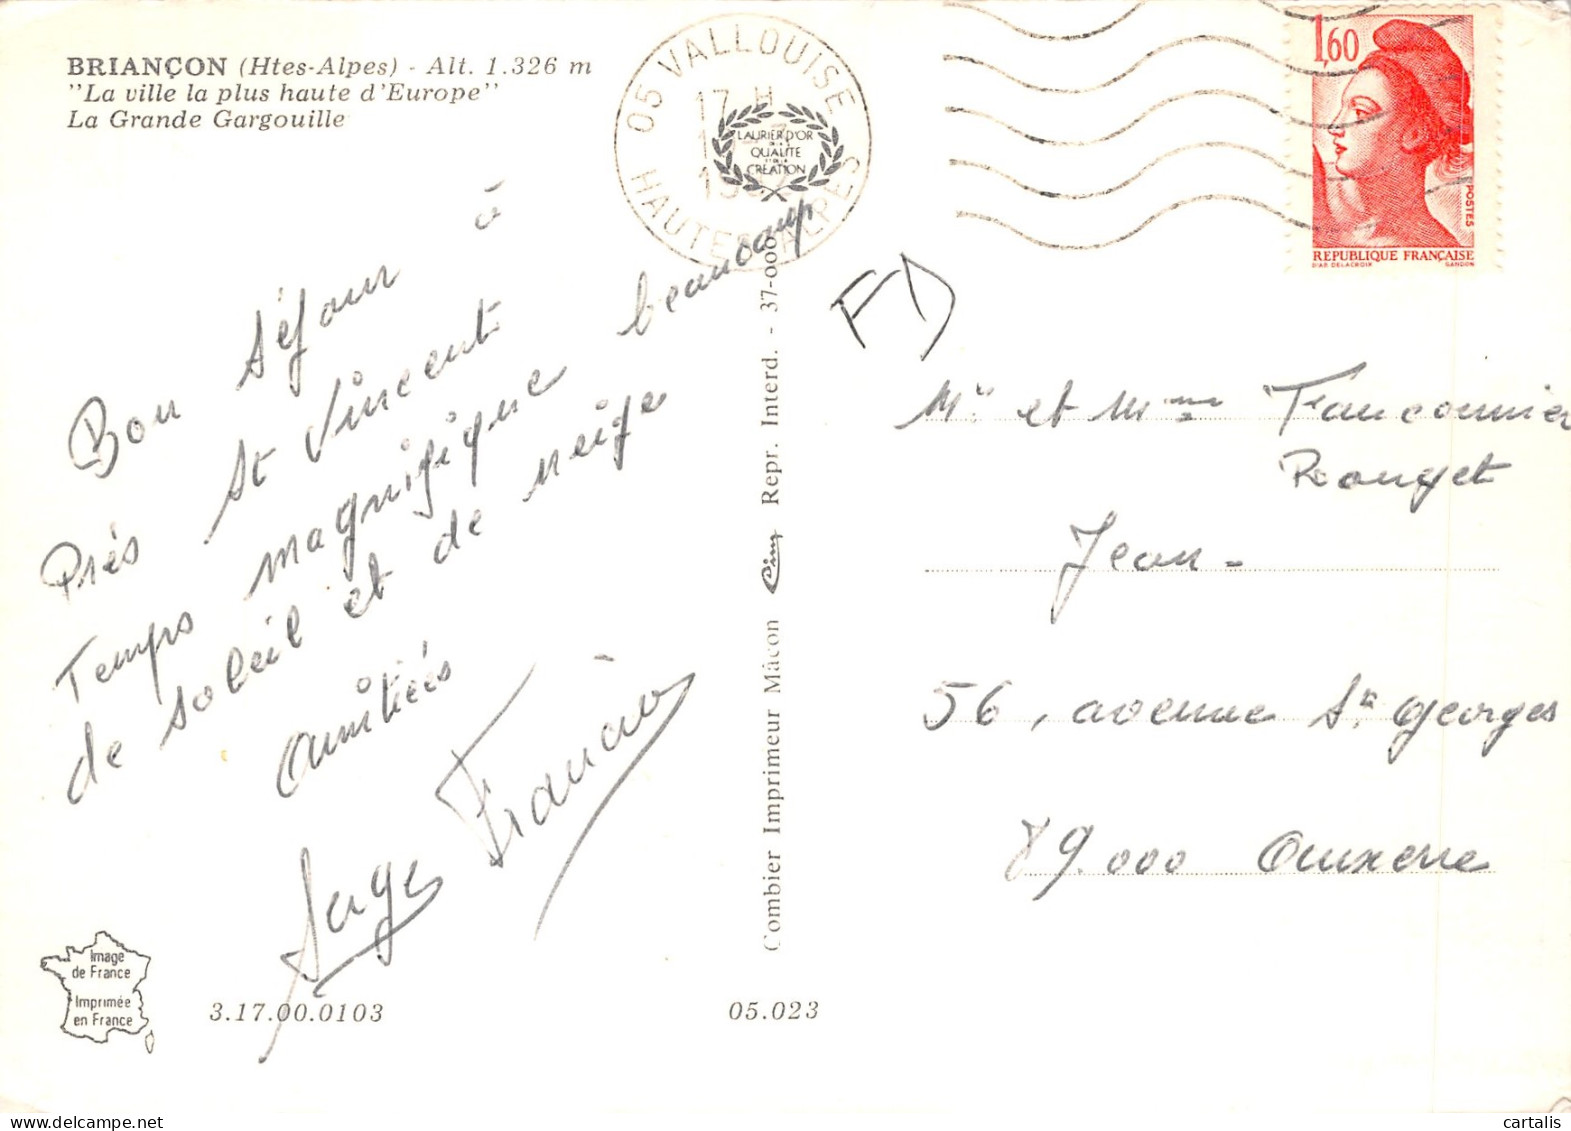 BRIANÇON (Htes-Alpes) - Alt. 1.326 m
"La ville la plus haute d'Europe"
La Grande Gargouille
05 VALLOUISE
17 H
HAUTES ALPES
LAURIER D'OR
QUALITE
CREATION
1,60
POSTES
REPUBLIQUE FRANÇAISE
D'AP. DELACROIX GANDON
Bon séjour à
Près St Vincent
Temps magnifique beaucoup
de soleil et de neige
Amitiés
Serge Francis
Combier Imprimeur Mâcon Cim Repr. Interd. - 37-000
Mr et Mme Fauconnier
Rouget
Jean-
56, avenue St Georges
89.000 Auxerre
Image
de France
Imprimée
en France
3.17.00.0103
05.023
www.cartalis.com